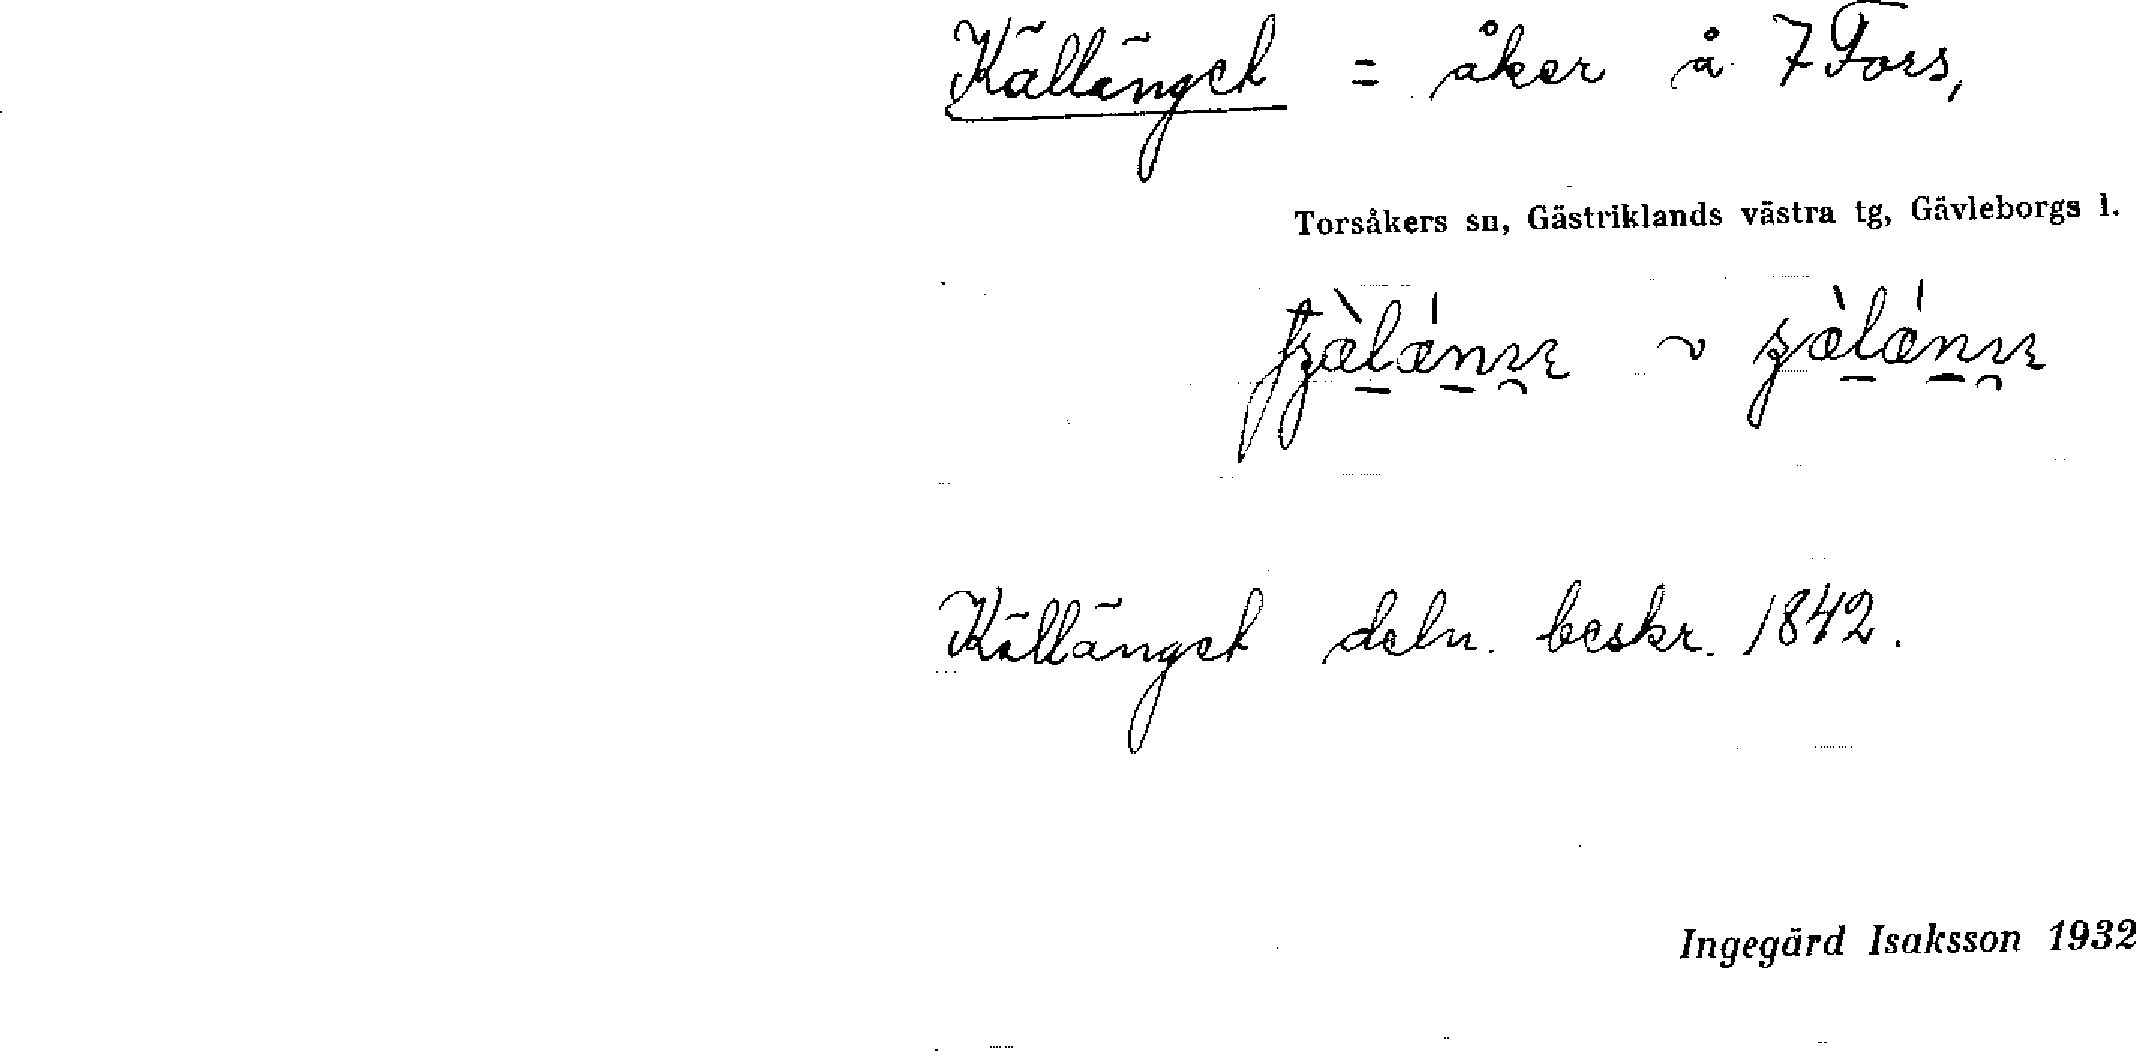 Källänget = åker å 7 Fors,
Torsåkers sn, Gästriklands västra tg, Gävleborgs l.
Källänget deln. beskr. 1842.
Ingegärd Isaksson 1932